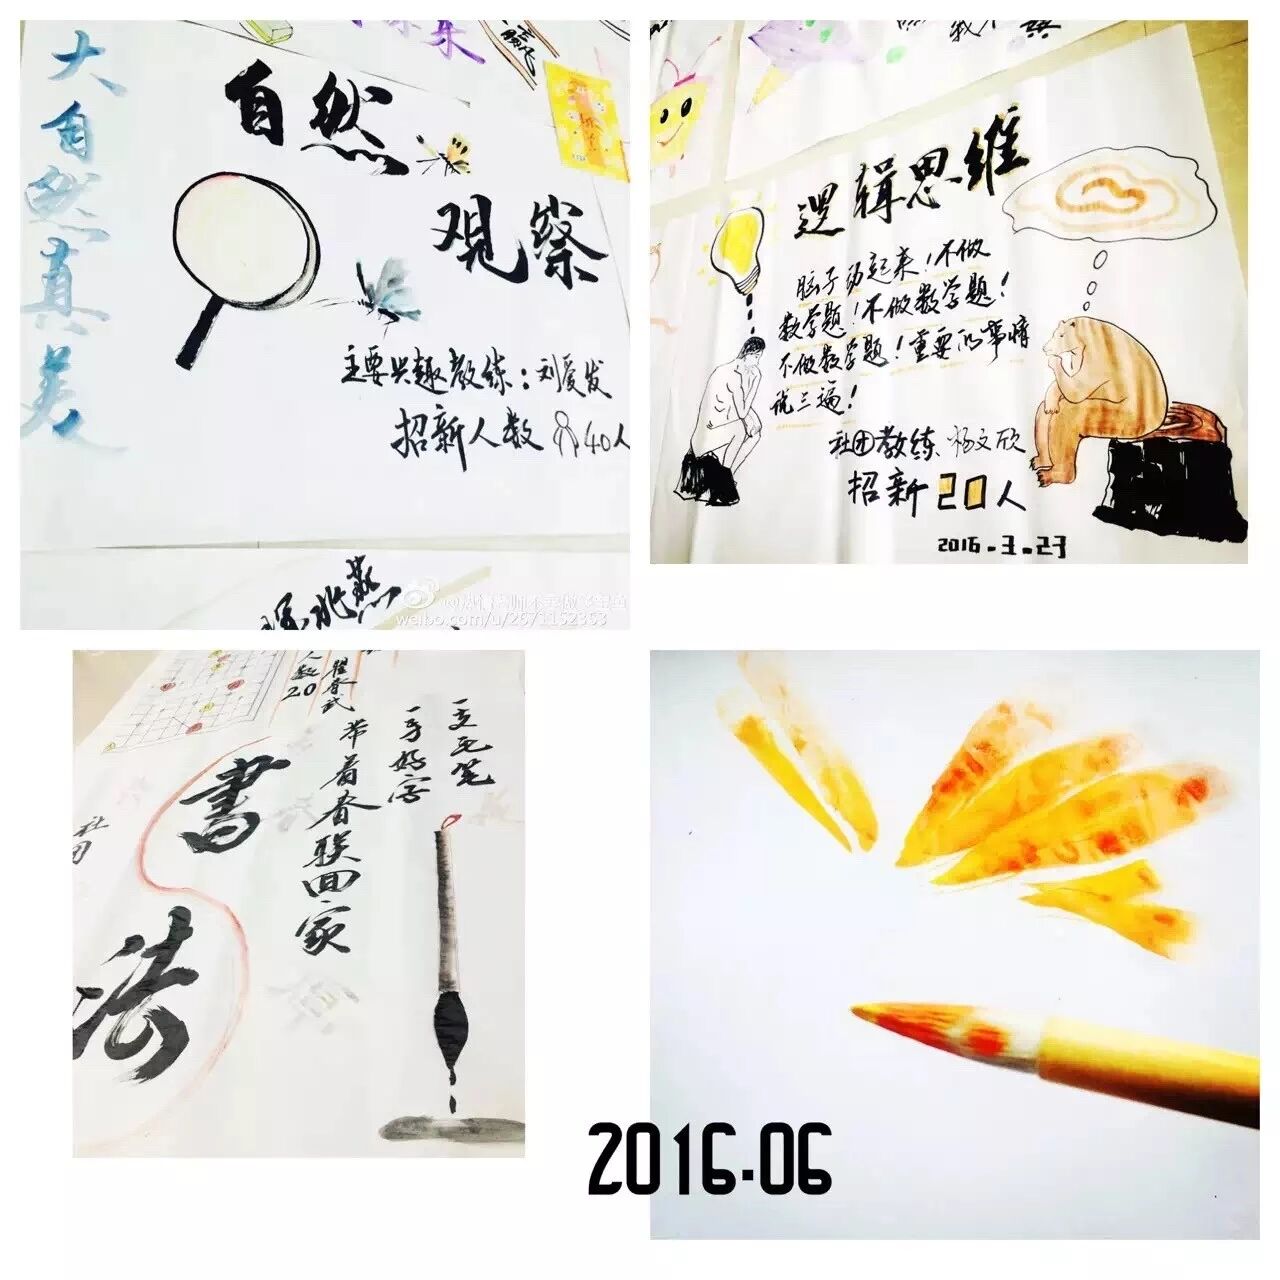 大自然真美
自然
观察
主要兴趣教练：刘爱发
招新人数 40人
weibo.com/u/2671152353
逻辑思维
脑子动起来！不做
数学题！不做数学题！
不做数学题！重要的事情
说三遍！
社团教练 杨文欣
招新20人
2016.3.23
人数20
書法
一支毛笔
一手好字
带着春联回家
2016.06